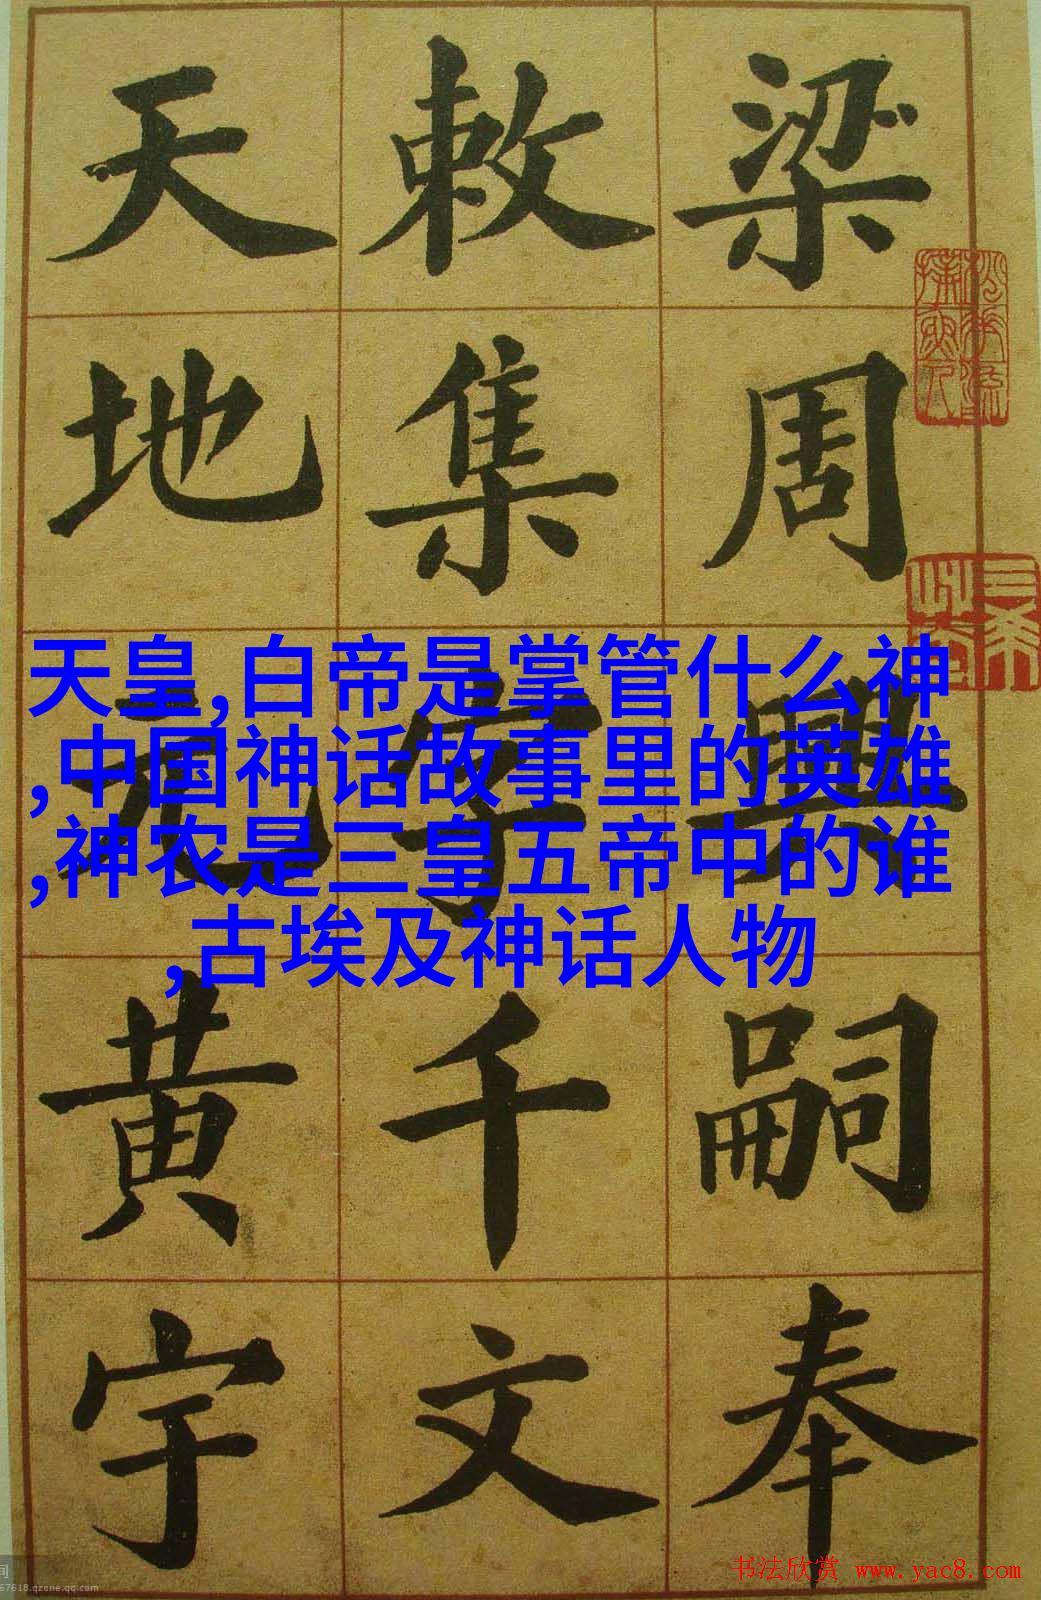 梁周興嗣奉
敕集字千文
天地元黄宇
天皇,白帝是掌管什么神
,中国神话故事里的英雄
,神农是三皇五帝中的谁
,古埃及神话人物
书法欣赏 www.yac8.com
67618.qzone.qq.com